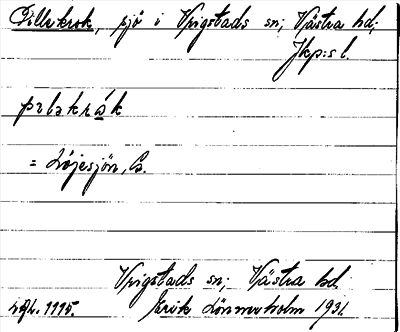 Pillekrok, sjö i Vrigstads sn; Västra hd;
Jkp:s l.
pɩləkråk
= Löjesjön, 
Vrigstads sn; Västra hd
1995. Erik Lönnerholm 1931.